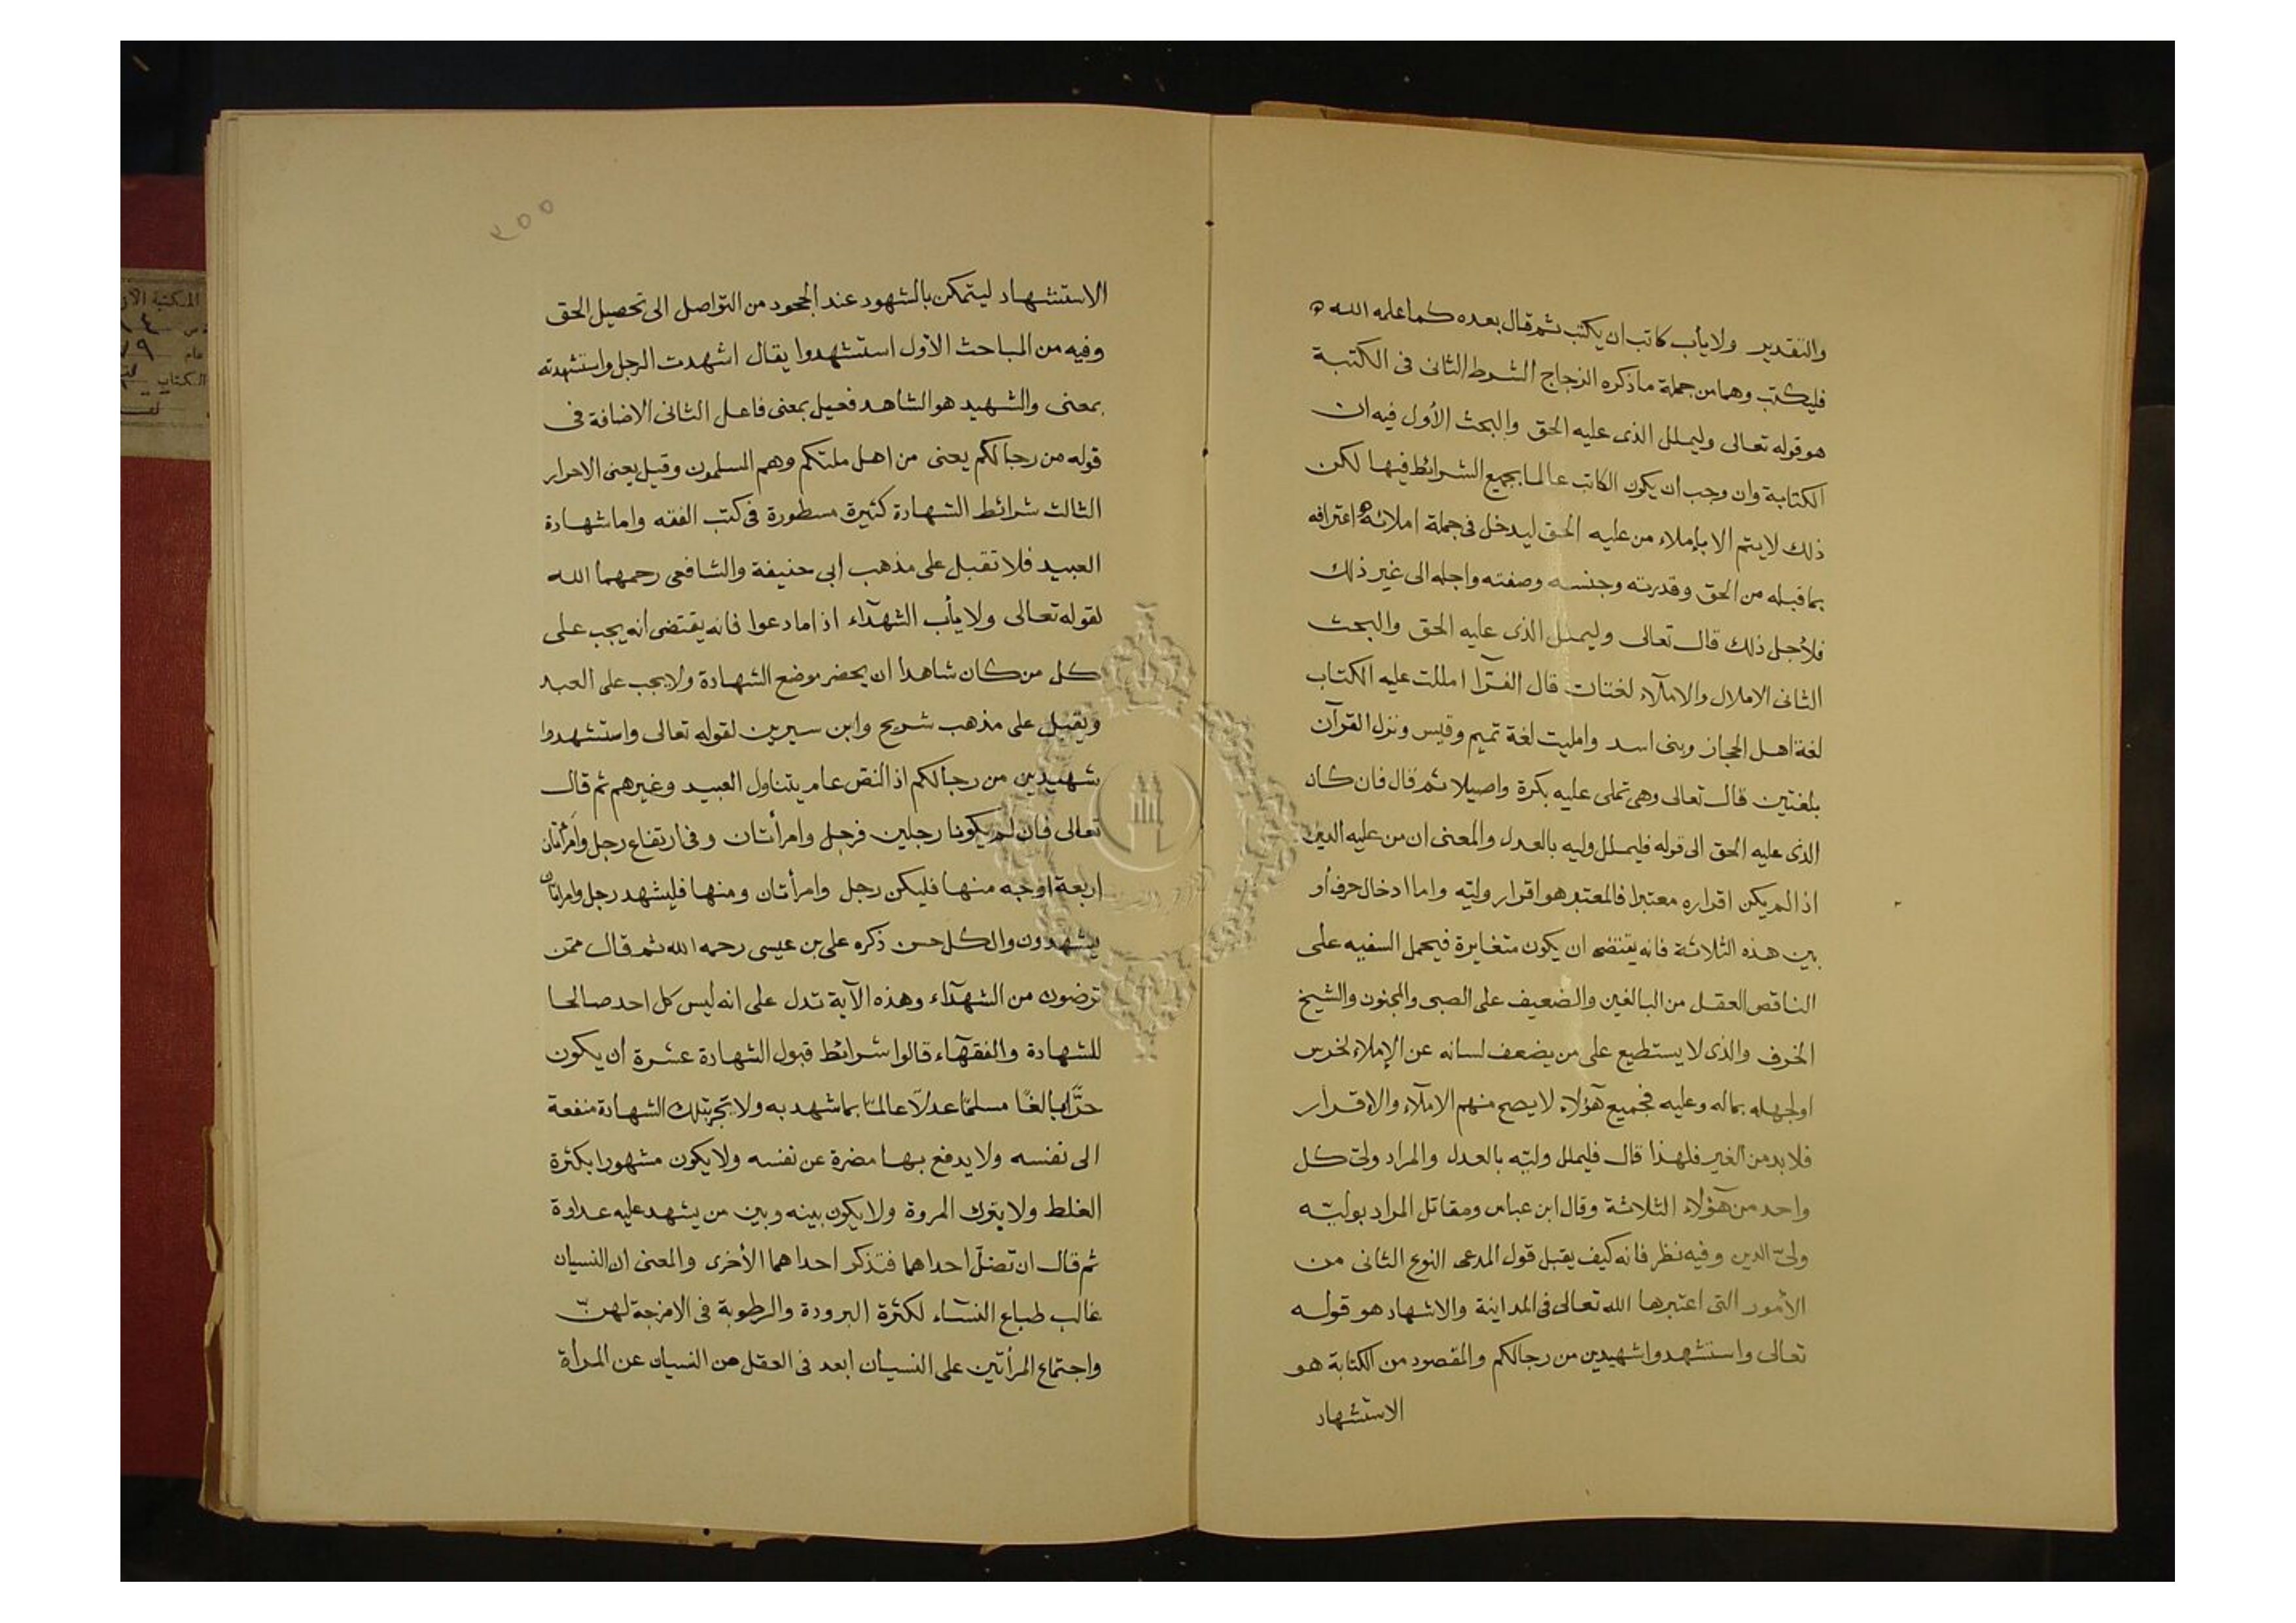 والتقدير ولا يأب كاتب ان يكتب ثم قال بعده كما علمه الله
فليكتب وهما من جملة ما ذكره الزجاج الشرط الثانى فى الكتبة
هو قوله تعالى وليملل الذى عليه الحق والبحث الأول فيه ان
الكتابة وان وجب ان يكون الكاتب عالما بجميع الشرائط فيها لكن
ذلك لا يتم الا بإملاء من عليه الحق ليدخل فى جملة املائه اعترافه
بما قبله من الحق وقدرته وجنسه وصفته واجله الى غير ذلك
فلأجل ذلك قال تعالى وليملل الذى عليه الحق والبحث
الثانى الاملال والاملآء لغتان قال الفرّآ امللت عليه الكتاب
لغة اهل الحجاز وبنى اسد وامليت لغة تميم وقيس ونزل القرآن
بلغتين قال تعالى وهى تملى عليه بكرة واصيلا ثم قال فان كان
الذى عليه الحق الى قوله فليملل وليه بالعدل والمعنى ان من عليه الدين
اذا لم يكن اقراره معتبرا فالمعتبر هو اقرار وليّه واما ادخال حرف أو
بين هذه الثلاثة فانه يقتضى ان يكون متغايرة فيحمل السفيه على
الناقص العقل من البالغين والضعيف على الصبى والمجنون والشيخ
الخرف والذى لا يستطيع على من يضعف لسانه عن الإملاء لخرس
او لجهله بماله وعليه فجميع هؤلاء لا يصح منهم الاملآء والاقرار
فلا بد من الغير فلهذا قال فليملل وليّه بالعدل والمراد ولىّ كل
واحد من هؤلاء الثلاثة وقال ابن عباس ومقاتل المراد بوليّه
ولىّ الدين وفيه نظر فانه كيف يقبل قول المدعى النوع الثانى من
الأمور التى اعتبرها الله تعالى فى المداينة والاشهاد هو قوله
تعالى واستشهدوا شهيدين من رجالكم والمقصود من الكتابة هو
الاستشهاد
٢٥٥
الاستشهاد ليتمكن بالشهود عند الجحود من التواصل الى تحصيل الحق
وفيه من المباحث الأول استشهدوا يقال اشهدت الرجل واستشهدته
بمعنى والشهيد هو الشاهد فعيل بمعنى فاعل الثانى الاضافة فى
قوله من رجالكم يعنى من اهل ملتكم وهم المسلمون وقيل يعنى الاحرار
الثالث شرائط الشهادة كثيرة مسطورة فى كتب الفقه واما شهادة
العبيد فلا تقبل على مذهب ابى حنيفة والشافعى رحمهما الله
لقوله تعالى ولا يأب الشهدآء اذا ما دعوا فانه يقتضى أنه يجب على
كل من كان شاهدا ان يحضر موضع الشهادة ولا يجب على العبد
ويقبل على مذهب شريح وابن سيرين لقوله تعالى واستشهدوا
شهيدين من رجالكم اذ النص عام يتناول العبيد وغيرهم ثم قال
تعالى فان لم يكونا رجلين فرجل وامرأتان وفى ارتفاع رجل وامرأتان
اربعة اوجه منها فليكن رجل وامرأتان ومنها فليشهد رجل وامراتان
يشهدون والكل حسن ذكره على بن عيسى رحمه الله ثم قال ممّن
ترضون من الشهدآء وهذه الآية تدل على انه ليس كل احد صالحا
للشهادة والفقهآء قالوا شرائط قبول الشهادة عشرة أن يكون
حرًّا بالغًا مسلمًا عدلاً عالمًا بما شهد به ولا تجر بتلك الشهادة منفعة
الى نفسه ولا يدفع بها مضرة عن نفسه ولا يكون مشهورا بكثرة
الغلط ولا بترك المروة ولا يكون بينه وبين من يشهد عليه عداوة
ثم قال ان تضلّ احداهما فتذكر احداهما الأخرى والمعنى ان النسيان
غالب طباع النسآء لكثرة البرودة والرطوبة فى الامزجة لهنّ
واجتماع المرأتين على النسيان ابعد فى العقل من النسيان عن المرأة